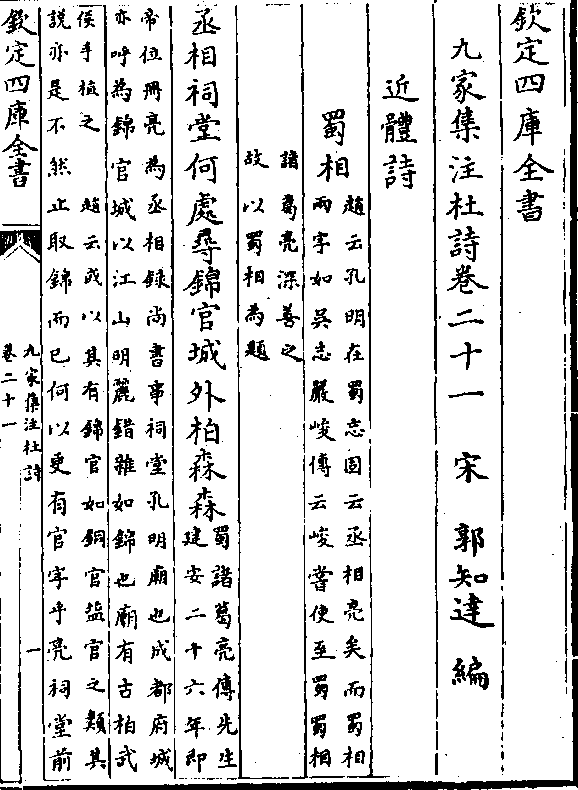 欽定四庫全書
九家集注杜詩卷二十一 宋 郭知達 編
近體詩
蜀相 趙云孔明在蜀志固云丞相亮矣而蜀相
兩字如吳志嚴峻傳云峻嘗使至蜀蜀相
諸葛亮深善之
故以蜀相為題
丞相祠堂何處尋錦官城外柏森森 蜀諸葛亮傳先主
建安二十六年即
帝位冊亮為丞相錄尚書事祠堂孔明廟也成都府城
亦呼為錦官城以江山明麗錯雜如錦也廟有古柏武
侯手植之 趙云或以其有錦官如銅官盐官之類其
說亦是不然止取錦而已何以更有官字乎亮祠堂前
欽定四庫全書
九家集注杜詩
卷二十一
一